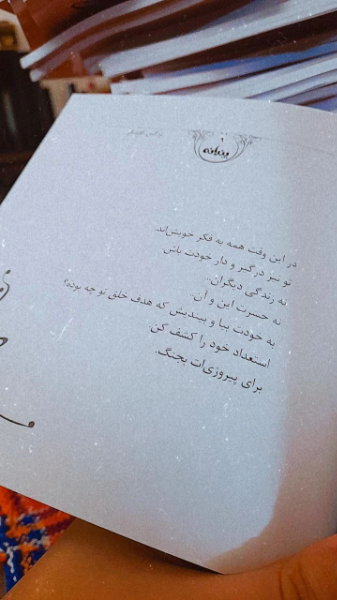 در این وقت همه به فکر خویش‌اند
تو نیز درگیر و دار خودت باش
نه زندگی دیگران..
نه حسرت این و آن.
به خودت بیا و بیندیش که هدف خلق تو چه بوده؟
استعداد خود را کشف کن
برای پیروزی‌ات بجنگ.